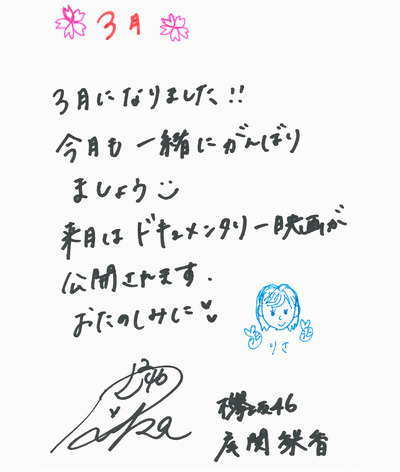 3月
3月になりました!!
今月も一緒にがんばり
ましょう
来月はドキュメンタリー映画が
公開されます.
おたのしみに
りさ
欅坂46
尾関梨香